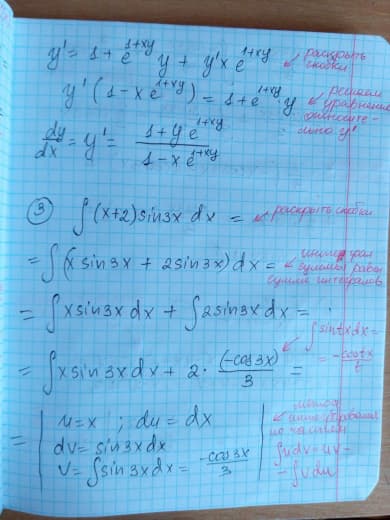 y' = 1 + e^{1+xy} y + y'x e^{1+xy} раскрыть скобки
y' (1 - x e^{1+xy}) = 1 + e^{1+xy} · y решаем уравнение относительно y'
dy/dx = y' = (1 + y e^{1+xy}) / (1 - x e^{1+xy})
③ ∫ (x+2) sin 3x dx = раскрыть скобки
= ∫ (x sin 3x + 2 sin 3x) dx = интеграл суммы равен сумме интегралов
= ∫ x sin 3x dx + ∫ 2 sin 3x dx =
= ∫ x sin 3x dx + 2 · (-cos 3x)/3 = ∫ sin tx dx = = -cos tx / t
= | u = x ; du = dx
dv = sin 3x dx
v = ∫ sin 3x dx = -cos 3x / 3 |
метод интегрирования по частям
∫ u dv = uv - - ∫ v du